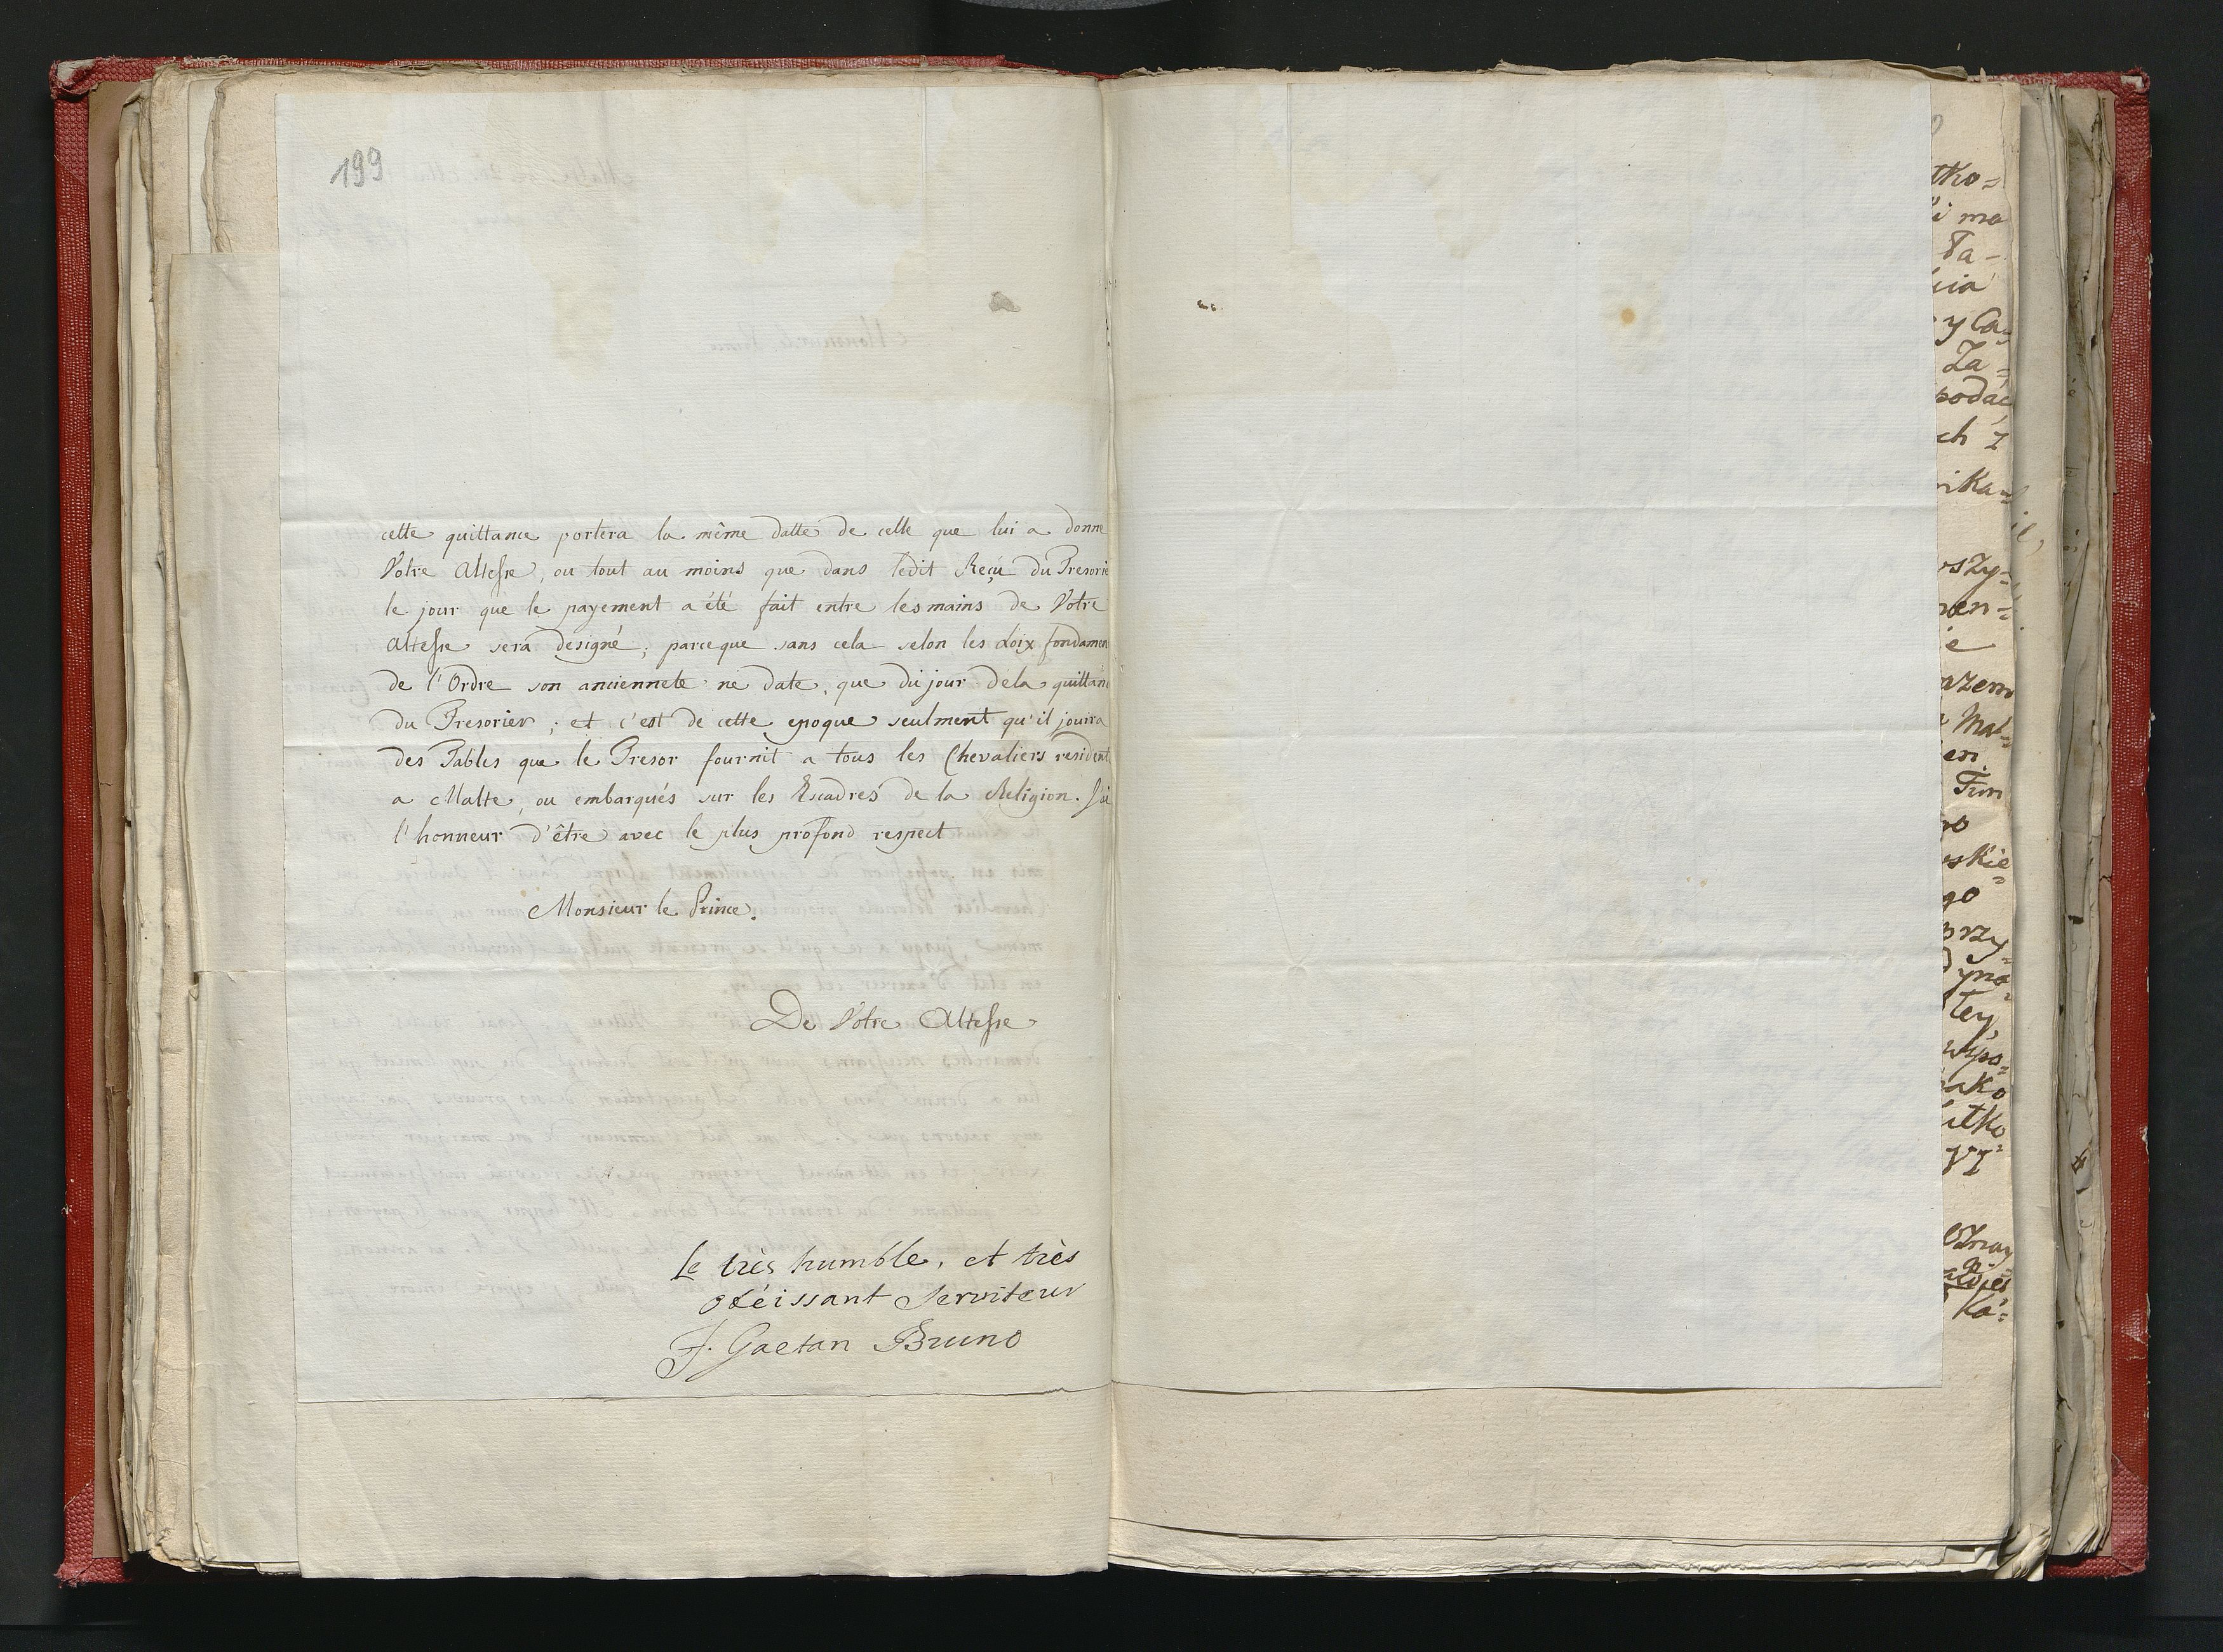 199
cette quittance portera la même datte de celle que lui a donne
Votre Altesse, ou tout au moins que dans ledit Reçu du Tresorie
le jour que le payement a été fait entre les mains de Votre
Altesse sera designé; parceque sans cela selon les Loix fondamen
de l'Ordre son ancienneté ne date, que du jour de la quittanc
du Tresorier; et c'est de cette epoque seulment qu'il jouira
des Tables que le Tresor fournit a tous les Chevaliers resident
a Malte, ou embarqués sur les Escadres de la Religion. J'ai
l'honneur d'être avec le plus profond respect
Monsieur le Prince.
De Votre Altesse
Le très humble, et très
obéissant Serviteur
F. Gaetan Bruno
tko=
i ma
Ta-
cia
y Ca=
Za=
podać
ch z
ika=
szy=
nen=
e
azem
Mal=
en
Tim
go
skie=
go
przy=
dyna=
tey,
wspo=
ako
itko
Ka=